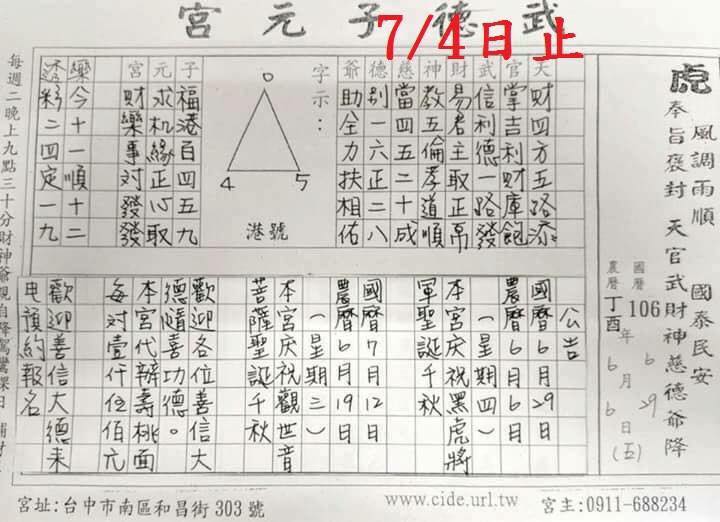 武德子元宮
7/4日止
虎
風調雨順　國泰民安
奉旨褒封 天官武財神慈德爺降
國曆 106年6月29
農曆 丁酉 6月6日(五)
天官武財神慈德爺字示：
財四方五路添
掌吉利財庫飽
信利德一路發
易君主取正帛
教五倫孝道順
當四五二十成
別一六正二八
助全力扶相佑
0
4 5
港號
子元宮
福港百四五九
求机緣正心取
財樂事對發發
樂今十一順十二
透彩二四定一九
公告
國曆6月29日
農曆6月6日
(星期四)
本宮庆祝黑虎將
軍聖誕千秋
國曆7月12日
農曆6月19日
(星期三)
本宮庆祝觀世音
菩薩聖誕千秋
歡迎各位善信大
德隨喜功德。
本宮代辦壽桃面
每対壹仟伍佰元
歡迎善信大德来
电預約報名
每週二晚上九點三十分財神爺親自降駕
宮址:台中市南區和昌街303號
www.cide.url.tw
宮主:0911-688234